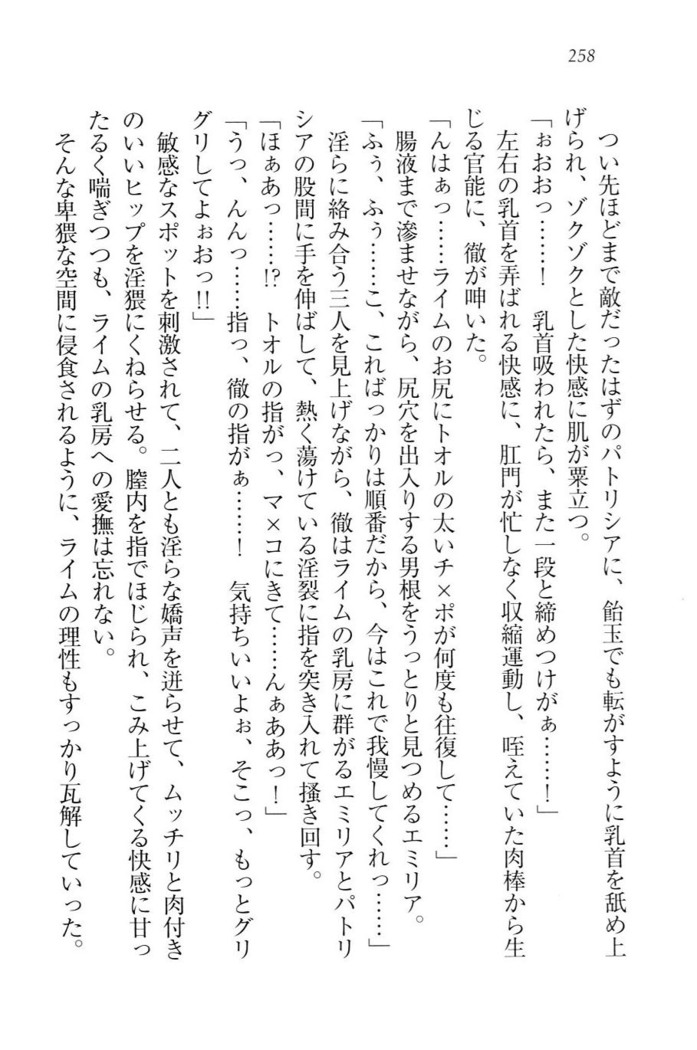 258
つい先ほどまで敵だったはずのパトリシアに、飴玉でも転がすように乳首を舐め上
げられ、ゾクゾクとした快感に肌が粟立つ。
「ぉおおっ……！　乳首吸われたら、また一段と締めつけがぁ……！」
左右の乳首を弄ばれる快感に、肛門が忙しなく収縮運動し、咥えていた肉棒から生
じる官能に、徹が呻いた。
「んはぁっ……ライムのお尻にトオルの太いチ×ポが何度も往復して……」
腸液まで滲ませながら、尻穴を出入りする男根をうっとりと見つめるエミリア。
「ふぅ、ふぅ……こ、こればっかりは順番だから、今はこれで我慢してくれっ……」
淫らに絡み合う三人を見上げながら、徹はライムの乳房に群がるエミリアとパトリ
シアの股間に手を伸ばして、熱く蕩けている淫裂に指を突き入れて掻き回す。
「ほぁあっ……!?　トオルの指がっ、マ×コにきて……んぁああっ！」
「うっ、んんっ……指っ、徹の指がぁ……！　気持ちいいよぉ、そこっ、もっとグリ
グリしてよぉおっ!!」
敏感なスポットを刺激されて、二人とも淫らな嬌声を迸らせて、ムッチリと肉付き
のいいヒップを淫猥にくねらせる。膣内を指でほじられ、こみ上げてくる快感に甘っ
たるく喘ぎつつも、ライムの乳房への愛撫は忘れない。
そんな卑猥な空間に侵食されるように、ライムの理性もすっかり瓦解していった。